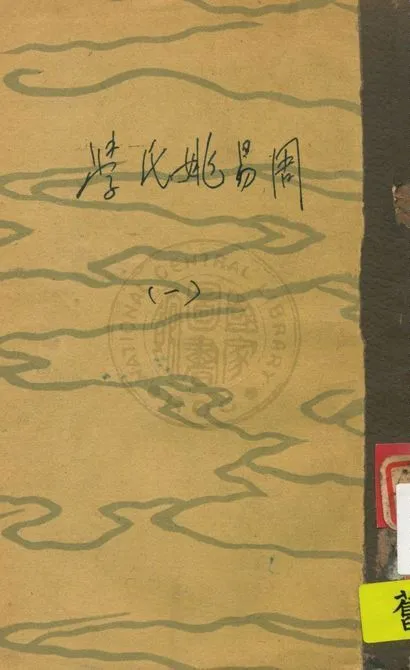 周易姚氏學
(一)
NATIONAL CENTRAL LIBRARY
國家
圖書
舊